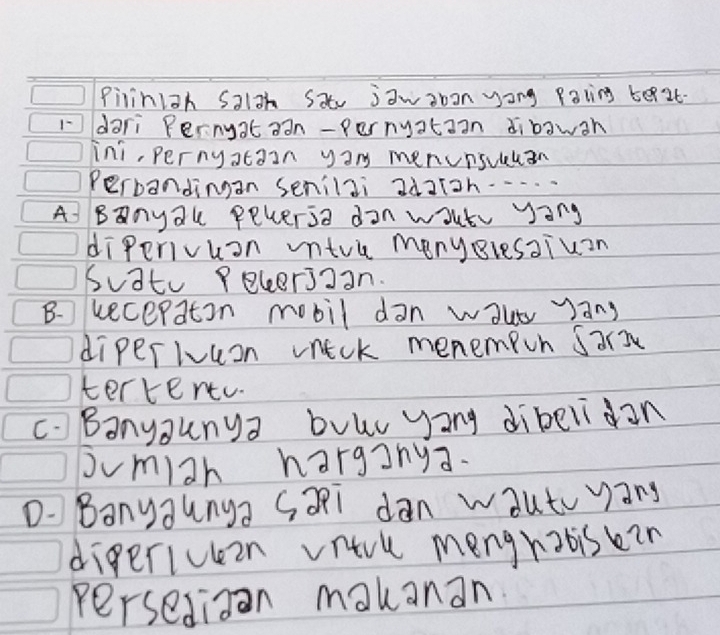 Pilihlah salah satu jawaban yang paling tepat.
1- dari Pernyataan - Pernyataan dibawah
ini, Pernyataan yang menunjukkan
Perbandingan senilai adalah ......
A- Banyak pekerja dan waktu yang
diperlukan untuk menyelesaikan
Suatu Pekerjaan.
B- kecepatan mobil dan waktu yang
diperlukan untuk menempuh jarak
tertentu.
C- Banyaknya buku yang dibeli dan
jumlah harganya.
D- Banyaknya sapi dan waktu yang
diperlukan untuk menghabiskan
Persediaan makanan.